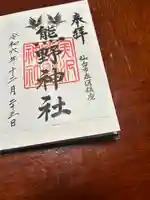 奉拝
仙台市泉区鎮座
熊野神社
令和六年十二月二十三日